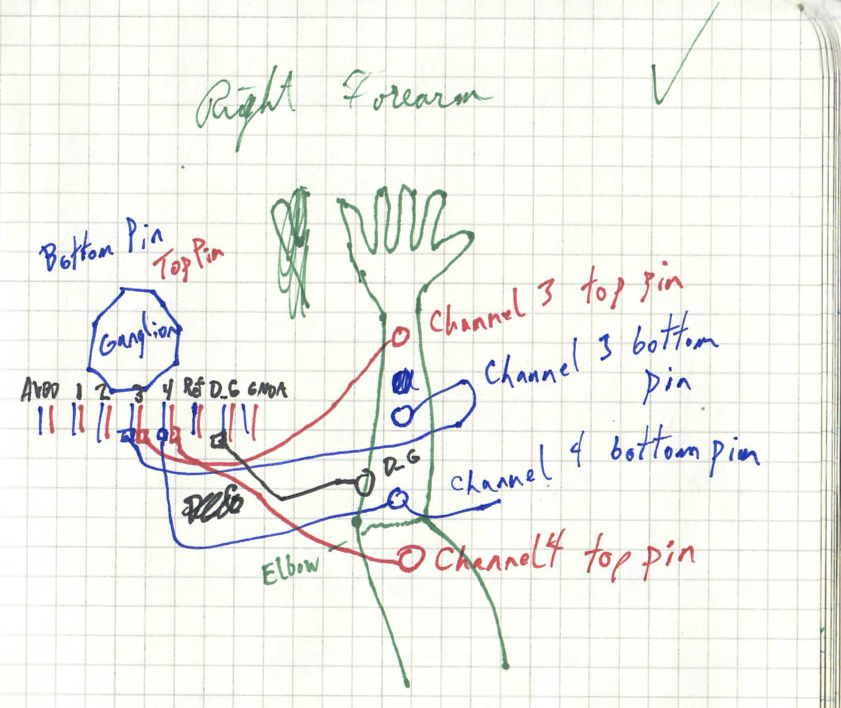 Right Forearm
Bottom Pin
Top Pin
Ganglion
AVDD 1 2 3 4 Ref D_G GNDA
Channel 3 top pin
Channel 3 bottom
pin
D_G
channel 4 bottom pin
Elbow
Channel 4 top pin